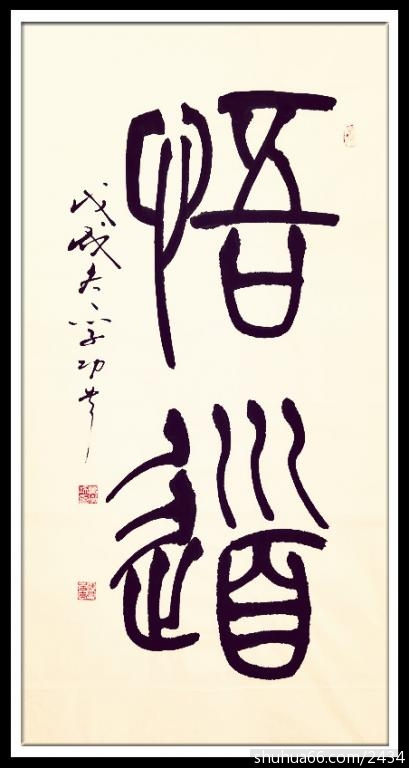 悟道
戊戌冬学功书
shuhua66.com/2434